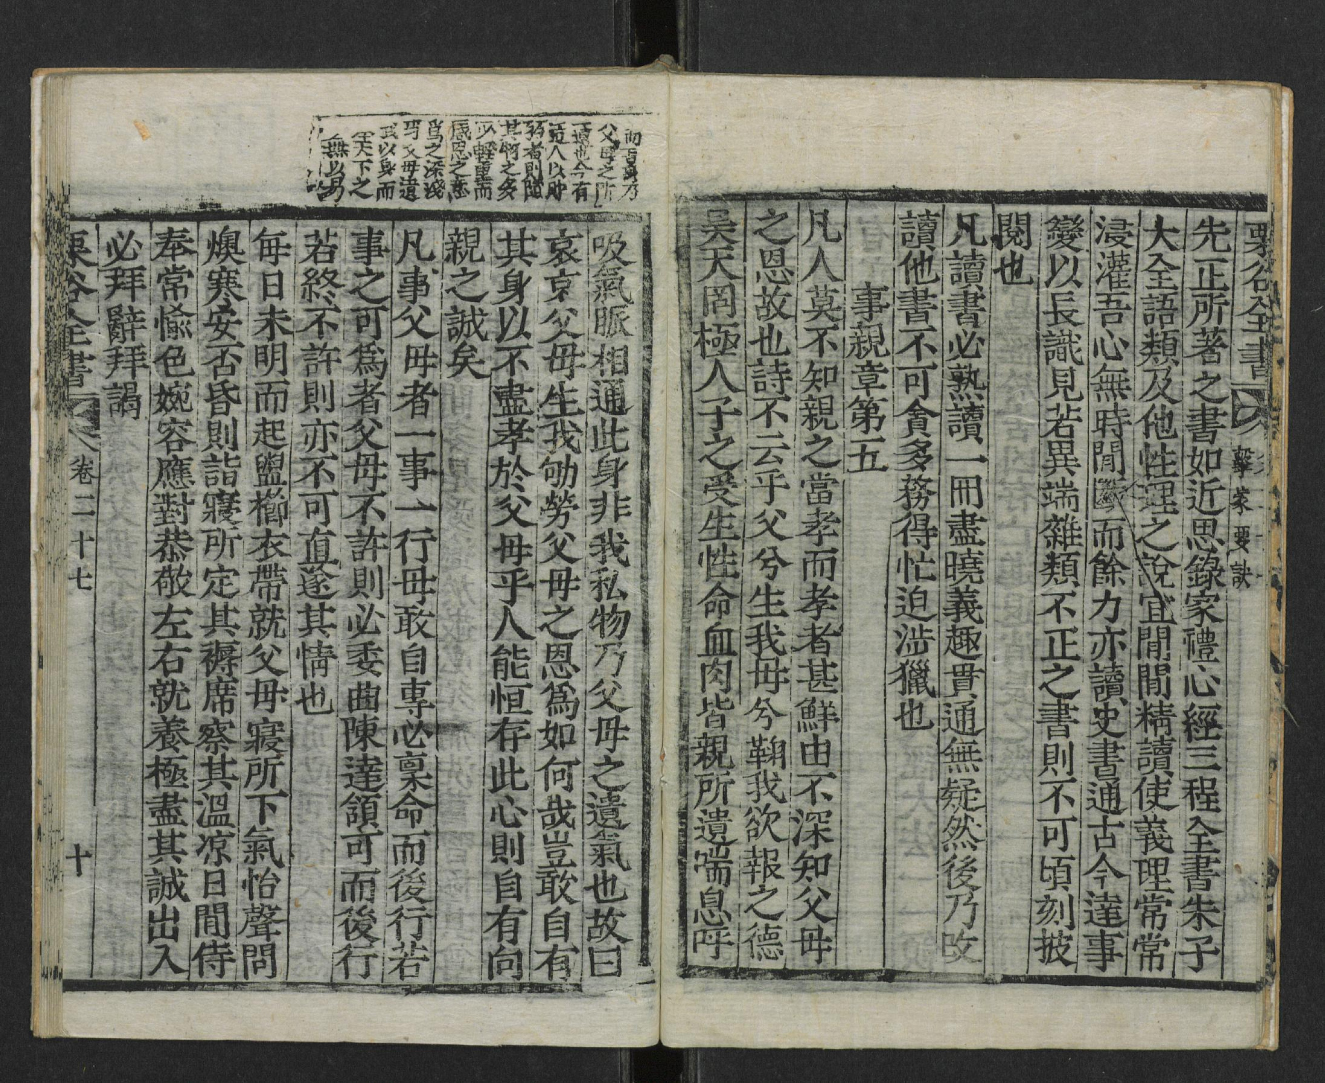 栗谷全書 擊蒙要訣
先正所著之書如近思錄家禮心經二程全書朱子
大全語類及他性理之說宜閒閒精讀使義理常常
浸灌吾心無時閒斷而餘力亦讀史書通古今達事
變以長識見若異端雜類不正之書則不可頃刻披
閱也
凡讀書必熟讀一冊盡曉義趣貫通無疑然後乃改
讀他書不可貪多務得忙迫涉獵也
事親章第五
凡人莫不知親之當孝而孝者甚鮮由不深知父母
之恩故也詩不云乎父兮生我母兮鞠我欲報之德
昊天罔極人子之受生性命血肉皆親所遺喘息呼
父母之所
遺也今有
遺人以財
物者則隨
其物之多
少輕重而
感恩之意
爲之深淺
焉父母遺
我以身而
擧天下之
物無以易
吸氣脈相通此身非我私物乃父母之遺氣也故曰
哀哀父母生我劬勞父母之恩爲如何哉豈敢自有
其身以不盡孝於父母乎人能恒存此心則自有向
親之誠矣
凡事父母者一事一行毋敢自專必稟命而後行若
事之可爲者父母不許則必委曲陳達頷可而後行
若終不許則亦不可直遂其情也
每日未明而起盥櫛衣帶就父母寢所下氣怡聲問
燠寒安否昏則詣寢所定其褥席察其溫凉日間侍
奉常愉色婉容應對恭敬左右就養極盡其誠出入
必拜辭拜謁
栗谷全書 卷二十七 十